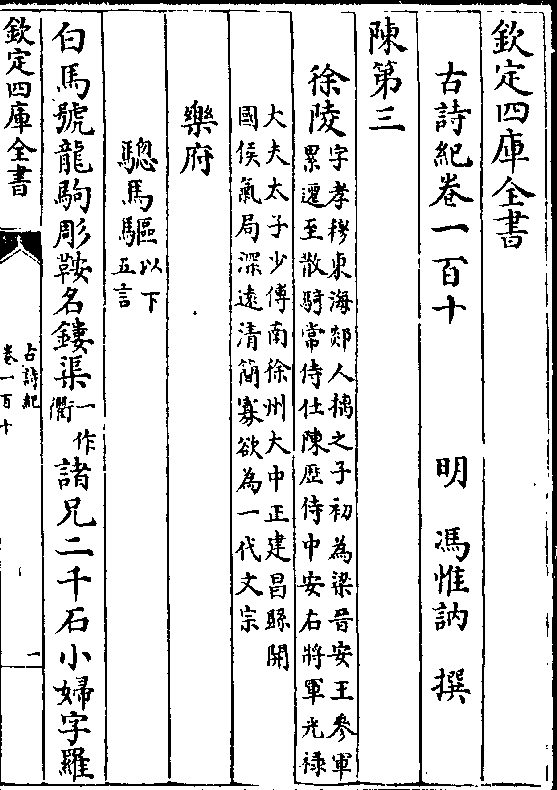 欽定四庫全書
古詩紀卷一百十
明 馮惟訥 撰
陳第三
徐陵字孝穆東海郯人摛之子初為梁晉安王參軍
累遷至散騎常侍仕陳歴侍中安右將軍光禄
大夫太子少傅南徐州大中正建昌縣開
國侯氣局深逺清簡寡欲為一代文宗
樂府
驄馬驅以下
五言
白馬號龍駒彫鞍名鏤渠一作
衢諸兄二千石小婦字羅
欽定四庫全書
古詩紀
卷一百十
一